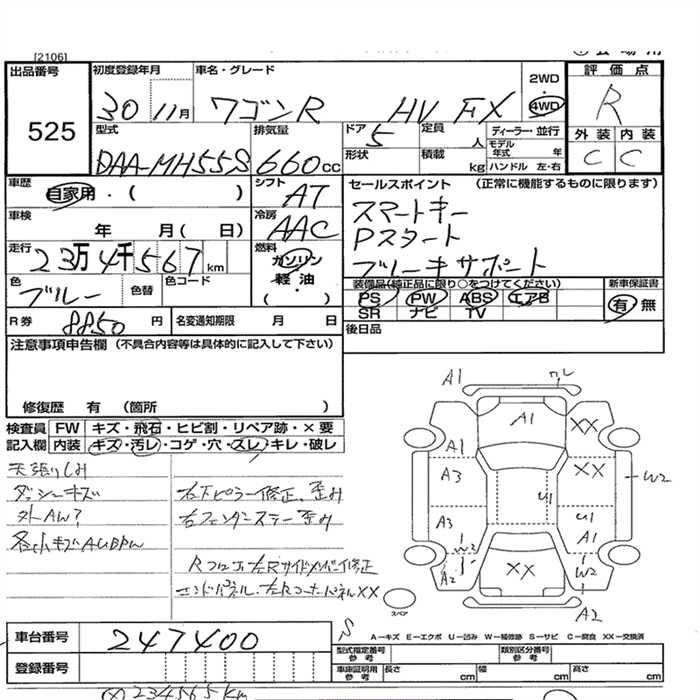 [2106]
出品番号 初度登録年月 車名・グレード 2WD・4WD 評価点
525 30 11月 ワゴンR HV FX R
型式 排気量 ドア 定員 ディーラー・並行 外装 内装
DAA-MH55S 660cc 5 人 モデル年式 年 C C
形状 積載 kg ハンドル 左・右
車歴 自家用・( ) シフト AT セールスポイント (正常に機能するものに限ります)
車検 年 月( 日) 冷房 AAC スマートキー
Pスタート
走行 23万4千567km 燃料 ガソリン・軽油・( ) ブレーキサポート
色 ブルー 色替 色コード
装備品(純正品に限り○をつけてください) 新車保証書
PS PW ABS エアB 有・無
SR ナビ TV
R券 8850円 名変通知期限 月 日 後日品
注意事項申告欄(不具合内容等は具体的に記入して下さい)
修復歴 有 (箇所 )
検査員記入欄 FW キズ・飛石・ヒビ割・リペア跡・×要
内装 キズ・汚レ・コゲ・穴・スレ・キレ・破レ
天張りしみ
ダッシュキズ
外AW?
右フェンダーステー歪み
A1
A1
XX
A1
A3
XX
W2
U1
A3
U1
A1
W2
W2
A2
XX
A2
スペア
A-キズ E-エクボ U-凹み W-補修跡 S-サビ C-腐食 XX-交換済
車台番号 247400
型式指定番号 参考 類別区分番号 参考
登録番号
車庫証明用 参考 長さ cm 幅 cm 高さ cm
234565km